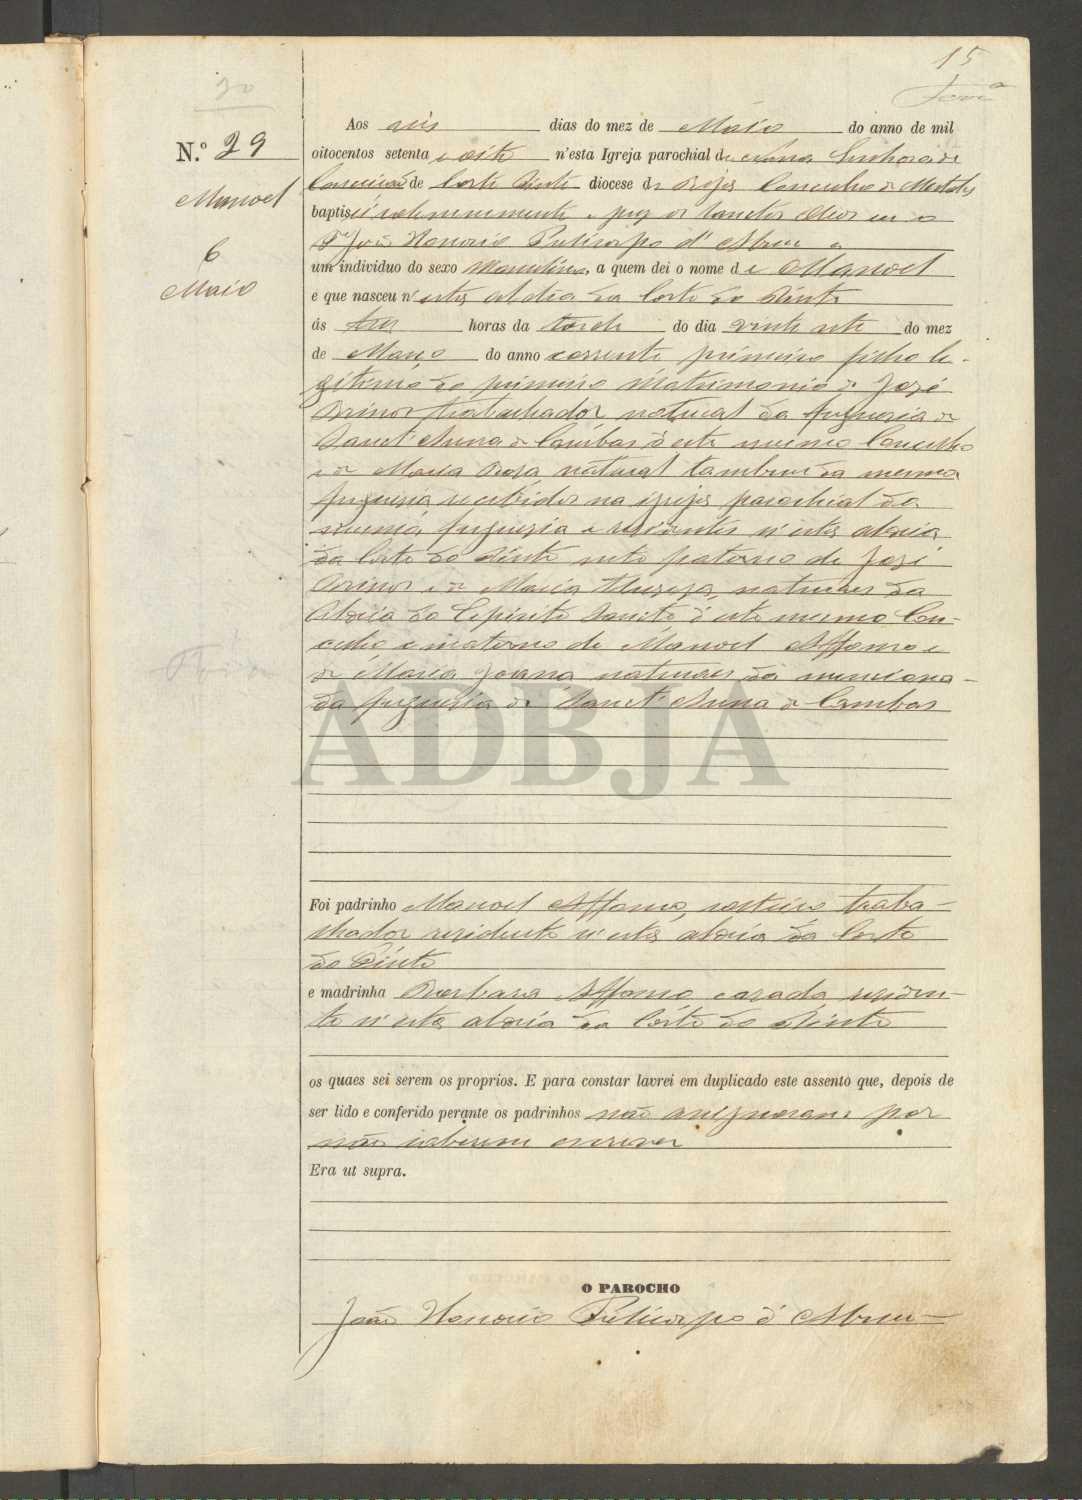 15
30
N.º 29
Manoel
6
Maio
Aos seis dias do mez de Maio do anno de mil
oitocentos setenta e oito n'esta Igreja parochial de Nossa Senhora da
Conceição de Corte Pinto diocese de Beja Concelho de Mertola
baptisei solemnemente e puz os Sanctos Oleos eu o
P.e João Honorio Policarpo d'Abreu a
um individuo do sexo Masculino, a quem dei o nome de Manoel
e que nasceu n'esta Aldeia da Corte do Pinto
ás tres horas da tarde do dia vinte sete do mez
de Março do anno corrente primeiro filho le-
gitimo do primeiro Matrimonio de José
trabalhador natural da freguesia de
Sanct'Anna de Cambas d'este mesmo Concelho
e de Maria Roza natural tambem da mesma
freguesia recebidos na igreja parochial da
mesma freguesia e residentes n'esta aldeia
da Corte do Pinto neto paterno de José
e de Maria Thereza, naturaes da
Aldeia do Espirito Sancto d'este mesmo Con-
celho e materno de Manoel Affonso e
de Maria Joanna naturaes da menciona-
da freguesia de Sanct'Anna de Cambas
ADBJA
Foi padrinho Manoel Affonso, solteiro traba-
lhador residente n'esta aldeia da Corte
do Pinto
e madrinha Barbara Affonso casada residen-
te n'esta aldeia da Corte do Pinto
os quaes sei serem os proprios. E para constar lavrei em duplicado este assento que, depois de
ser lido e conferido perante os padrinhos não assignaram por
não saberem escrever
Era ut supra.
O PAROCHO
João Honorio Policarpo d'Abreu